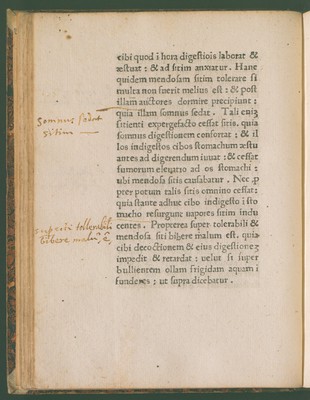 cibi quod i hora digestiois laborat &
æstuat ; & ad sitim anxiatur . Hanc
quidem mendosam sitim tolerare si
multa non fuerit melius est : & post
illam auctores dormire precipiunt :
quia illam somnus sedat . Tali cuiq
sitienti expergefacto cessat sitis . quia
somnus digestionem confortat ; & il
los indigestos cibos stomachum æstu
antes ad digerendum iuuat : & cessat
fumorum eleuatio ad os stomachi ;
ubi mendosa sitis causabatur . Nec ꝓ
pter potum talis sitis omnino cessat :
quia stante adhuc cibo indigesto i sto
macho resurgunt uapores sitim indu
centes . Propterea super tolerabili &
mendosa siti bibere malum est . quia
cibi decoctionem & eius digestionez
impedit & retardat : uelut si super
bullientem ollam frigidam aquam i
funderes ; ut supra dicebatur .
Somnus sedat
sitim
tollerabili
bibere